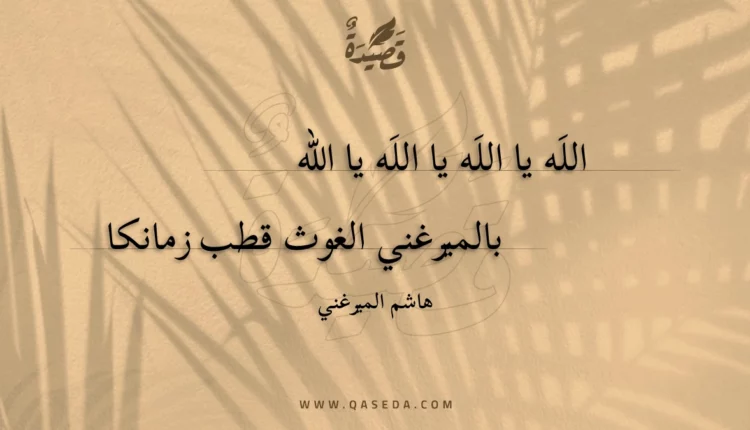 قَصِيْدَةٌ
اللَه يا اللَه يا اللَه يا الله
بالميرغني الغوث قطب زمانكا
هاشم الميرغني
WWW.QASEDA.COM